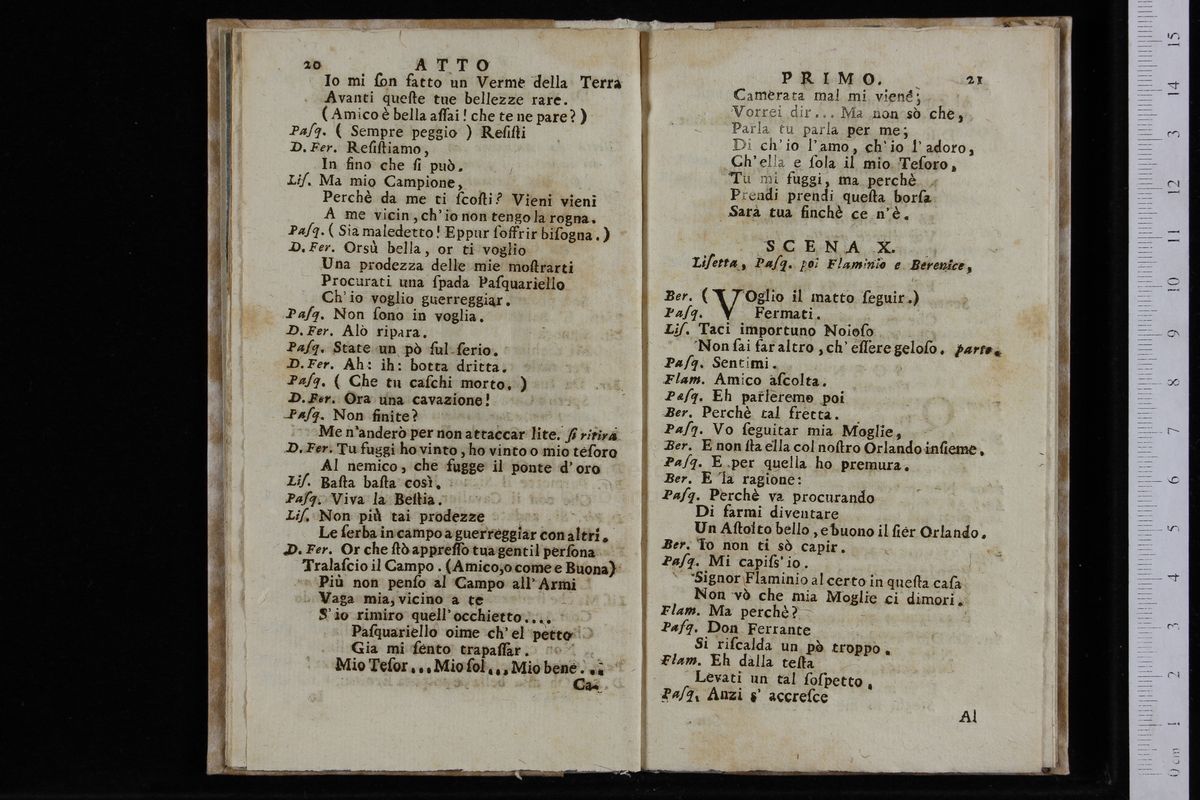 20 ATTO
Io mi ſon fatto un Verme della Terra
Avanti queſte tue bellezze rare.
(Amico è bella aſſai! che te ne pare?)
Paſq. ( Sempre peggio ) Reſiſti
D. Fer. Reſiſtiamo,
In fino che ſi può.
Liſ. Ma mio Campione,
Perchè da me ti ſcoſti? Vieni vieni
A me vicin, ch'io non tengo la rogna.
Paſq. (Sia maledetto! Eppur ſoffrir biſogna.)
D. Fer. Orsù bella, or ti voglio
Una prodezza delle mie moſtrarti
Procurati una ſpada Paſquariello
Ch'io voglio guerreggiar.
Paſq. Non ſono in voglia.
D. Fer. Alò ripara.
Paſq. State un pò ſul ſerio.
D. Fer. Ah: ih: botta dritta.
Paſq. ( Che tu caſchi morto. )
D. Fer. Ora una cavazione!
Paſq. Non finite?
Me n'anderò per non attaccar lite. ſi ritira
D. Fer. Tu fuggi ho vinto, ho vinto o mio teſoro
Al nemico, che fugge il ponte d'oro
Liſ. Baſta baſta così.
Paſq. Viva la Beſtia.
Liſ. Non più tai prodezze
Le ſerba in campo a guerreggiar con altri.
D. Fer. Or che ſtò appreſſo tua gentil perſona
Tralaſcio il Campo. (Amico, o come e Buona)
Più non penſo al Campo all'Armi
Vaga mia, vicino a te
S'io rimiro quell'occhietto....
Paſquariello oime ch'el petto
Gia mi ſento trapaſſar.
Mio Teſor... Mio ſol... Mio bene...
Ca-
PRIMO. 21
Camerata mal mi viene;
Vorrei dir... Ma non sò che,
Parla tu parla per me;
Di ch'io l'amo, ch'io l'adoro,
Ch'ella e ſola il mio Teſoro,
Tu mi fuggi, ma perchè
Prendi prendi queſta borſa
Sarà tua finchè ce n'è.
SCENA X.
Liſetta, Paſq. poi Flaminio e Berenice,
Ber. ( VOglio il matto ſeguir.)
Paſq. Fermati.
Liſ. Taci importuno Noioſo
Non ſai far altro, ch'eſſere geloſo. parte.
Paſq. Sentimi.
Flam. Amico aſcolta.
Paſq. Eh parleremo poi
Ber. Perchè tal fretta.
Paſq. Vo ſeguitar mia Moglie,
Ber. E non ſta ella col noſtro Orlando inſieme.
Paſq. E per quella ho premura.
Ber. E la ragione:
Paſq. Perchè va procurando
Di farmi diventare
Un Aſtolto bello, e buono il ſier Orlando.
Ber. Io non ti sò capir.
Paſq. Mi capiſs'io.
Signor Flaminio al certo in queſta caſa
Non vò che mia Moglie ci dimori.
Flam. Ma perchè?
Paſq. Don Ferrante
Si riſcalda un pò troppo.
Flam. Eh dalla teſta
Levati un tal ſoſpetto.
Paſq. Anzi s'accreſce
Al